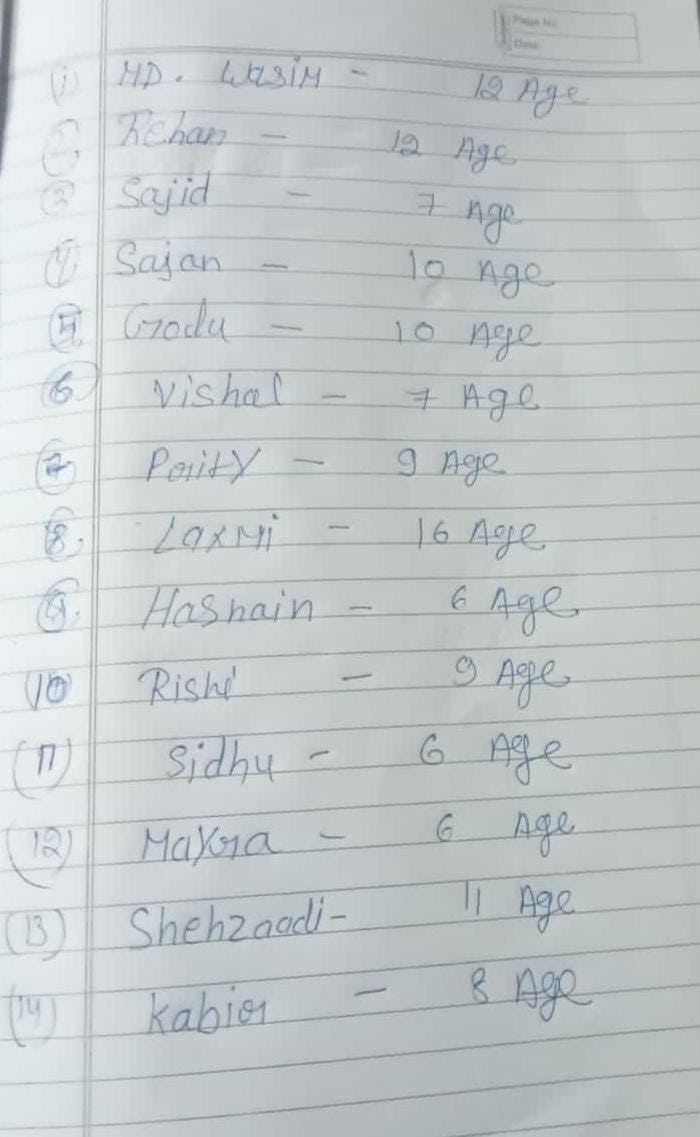 Page No.
Date
(1) MD. WASIM - 12 Age
(2) Rehan - 12 Age
(3) Sajid - 7 Age
(4) Sajan - 10 Age
(5) Godu - 10 Age
(6) Vishal - 7 Age
(7) Parity - 9 Age
(8) Laxmi - 16 Age
(9) Hasnain - 6 Age
(10) Rishi - 9 Age
(11) Sidhu - 6 Age
(12) Mayra - 6 Age
(13) Shehzaadi- 11 Age
(14) Kabir - 8 Age